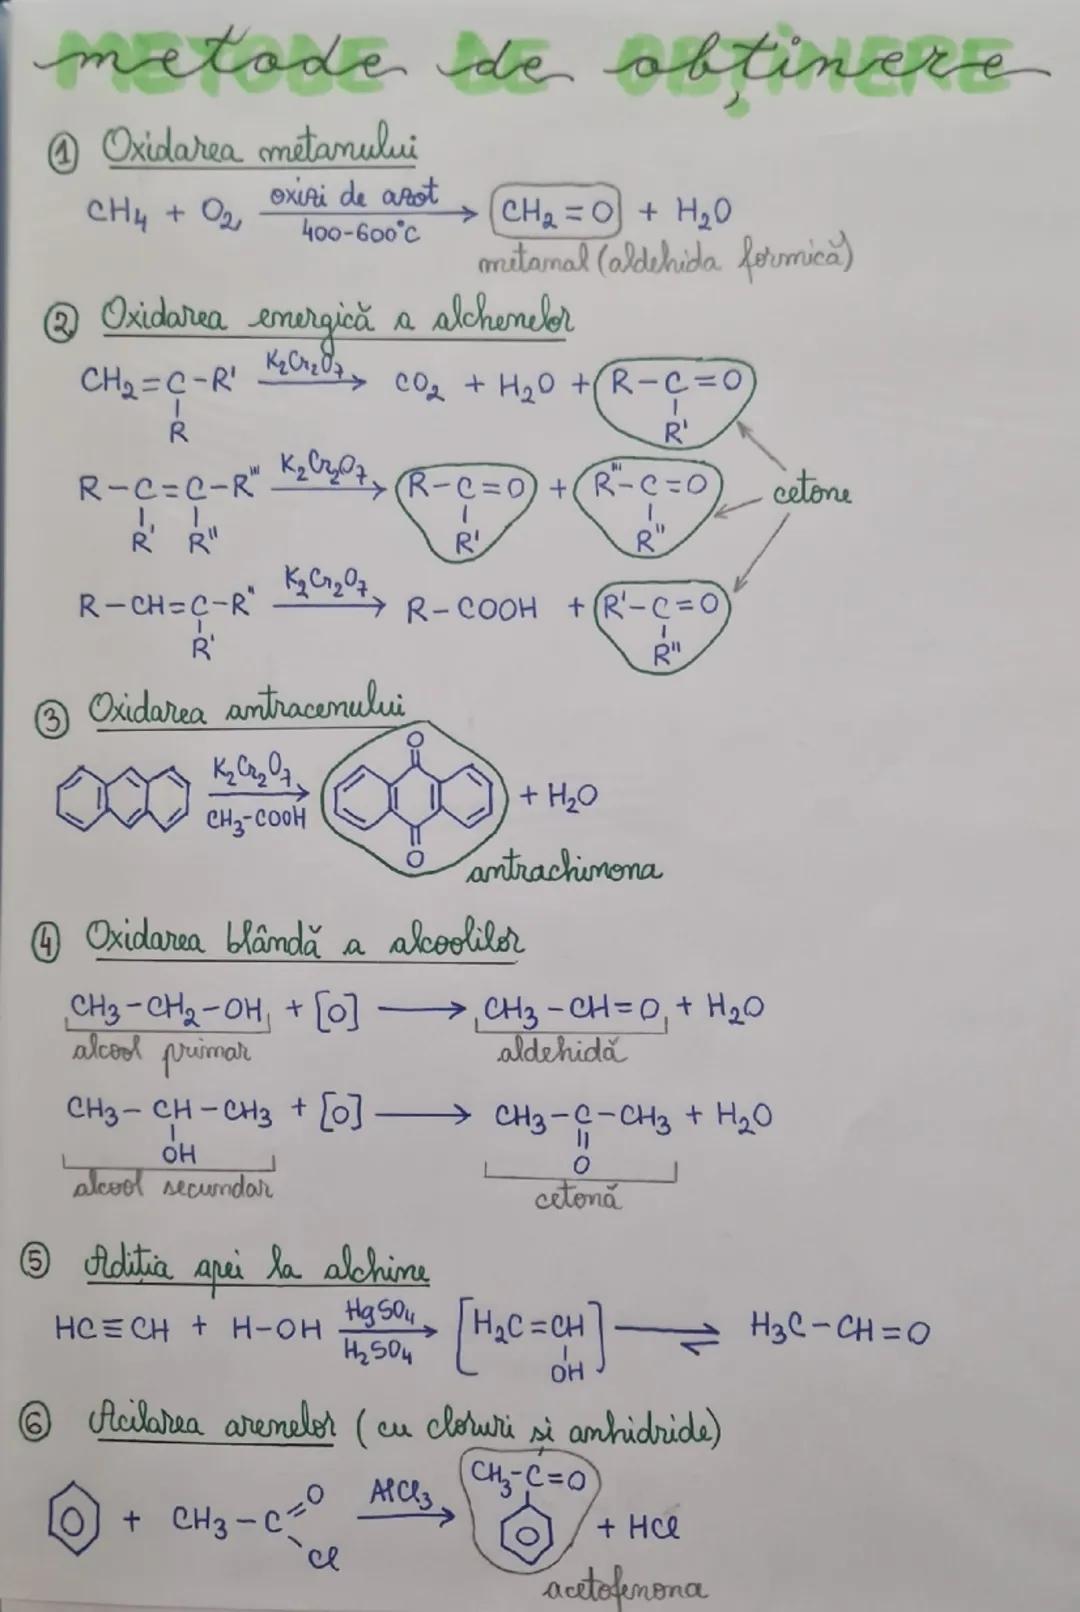 metode de obținere
① Oxidarea metanului
CH4 + O2 oxizi de azot 400-600°C → CH2=O + H2O
metanal (aldehida formică)
② Oxidarea energică a alchenelor
CH2=C-R' K2Cr2O7 → CO2 + H2O + R-C=O
R R'
R-C=C-R''' K2Cr2O7 → R-C=O + R'''-C=O cetone
R' R'' R' R''
R-CH=C-R'' K2Cr2O7 → R-COOH + R'-C=O
R' R''
③ Oxidarea antracenului
K2Cr2O7 CH3-COOH → O O + H2O
antrachinona
④ Oxidarea blândă a alcoolilor
CH3-CH2-OH + [O] → CH3-CH=O + H2O
alcool primar aldehidă
CH3-CH-CH3 + [O] → CH3-C-CH3 + H2O
OH O
alcool secundar cetonă
⑤ Adiția apei la alchine
HC≡CH + H-OH HgSO4 H2SO4 → [H2C=CH] ⇌ H3C-CH=O
OH
⑥ Acilarea arenelor (cu cloruri și anhidride)
CH3-C=O
+ CH3-C=O AlCl3 → + HCl
Cl
acetofenona